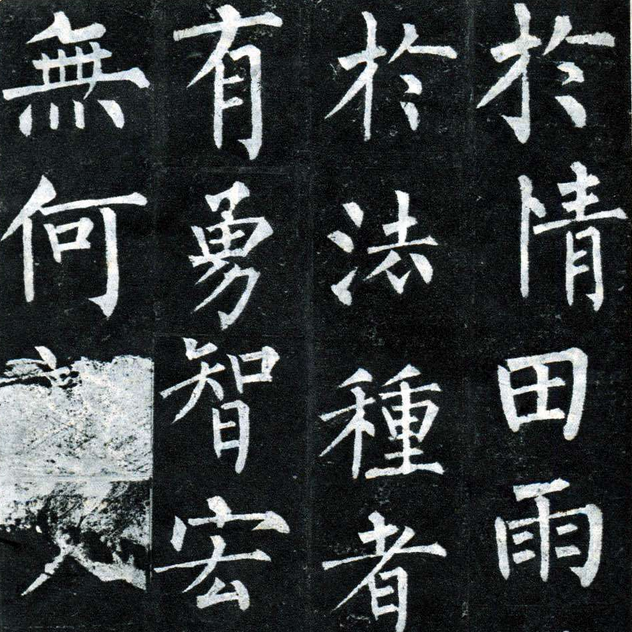 於情田雨
於法種者
有勇智宏
無何